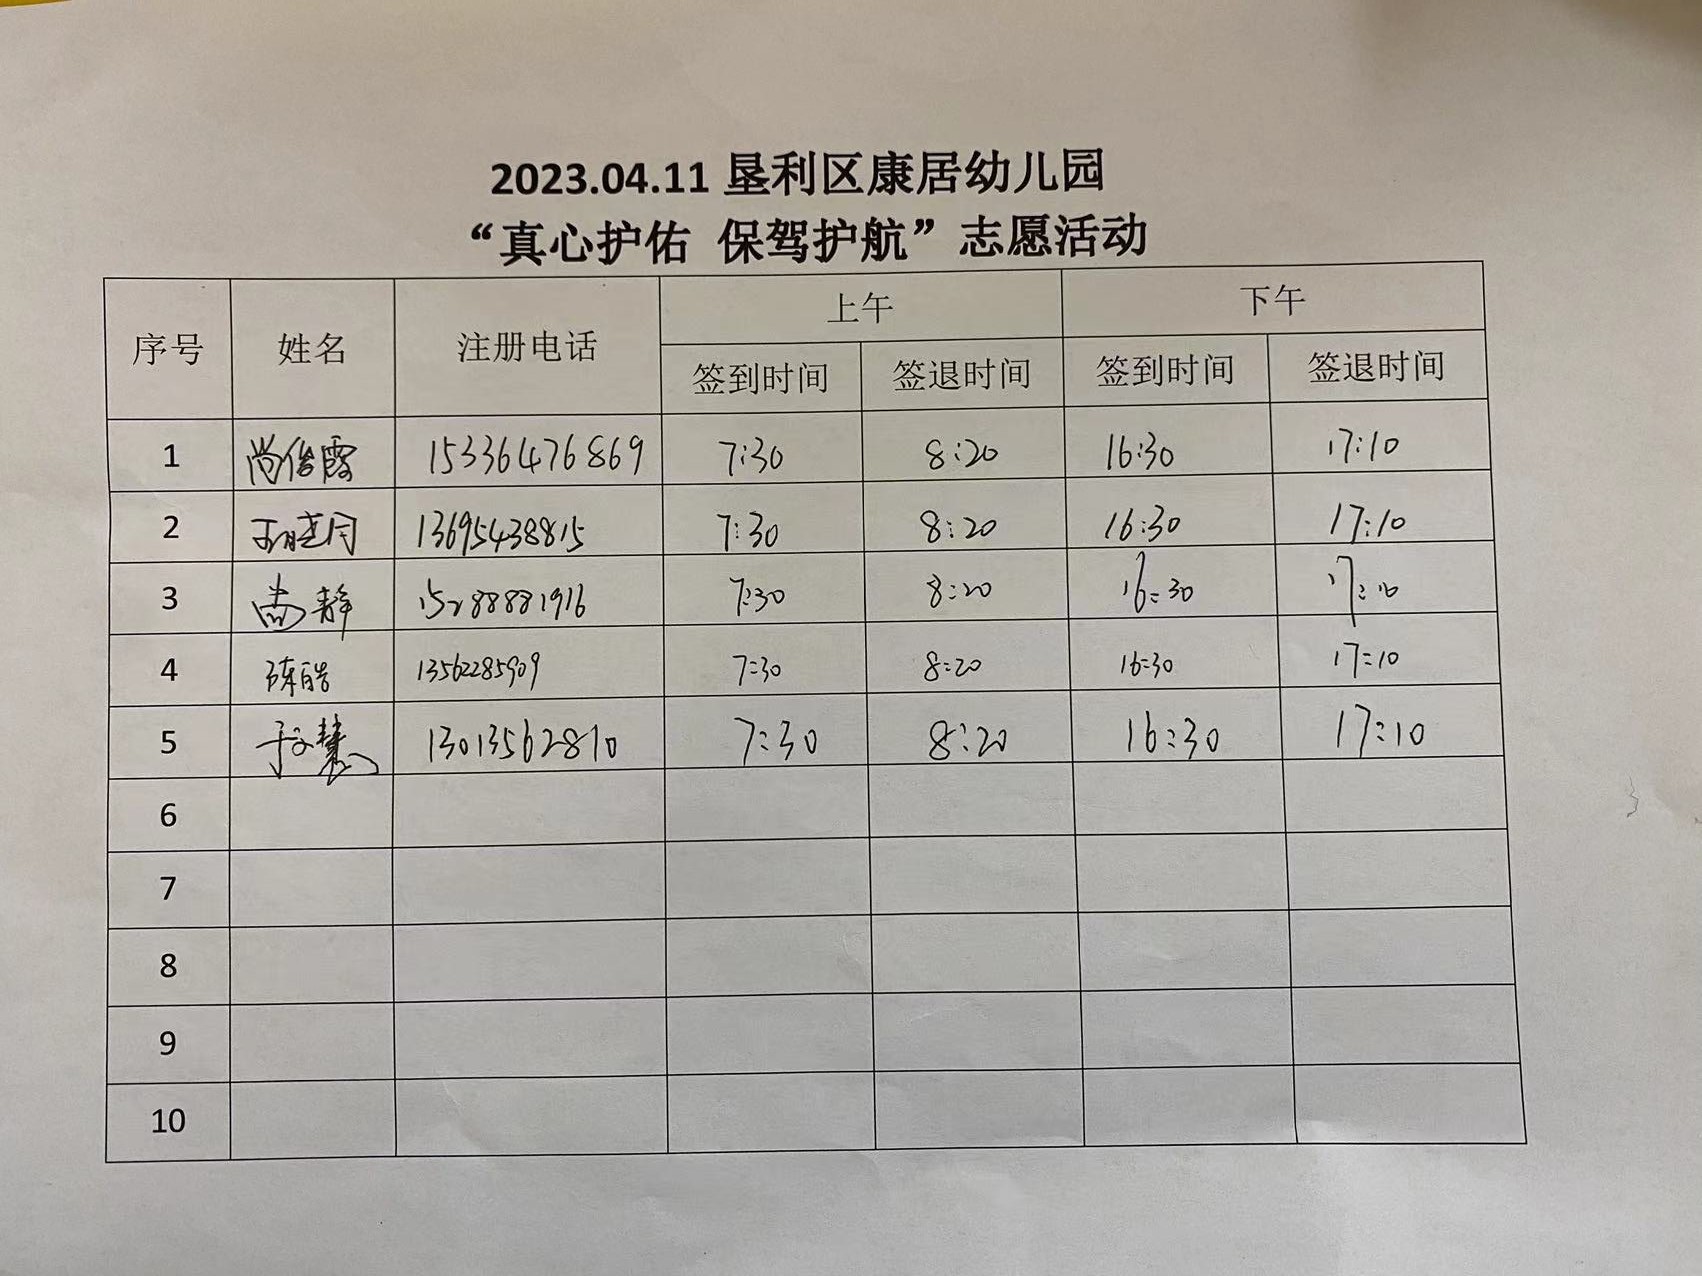 2023.04.11 垦利区康居幼儿园
“真心护佑 保驾护航”志愿活动
序号 姓名 注册电话 上午 下午
签到时间 签退时间 签到时间 签退时间
1 尚俊霞 15336476869 7:30 8:20 16:30 17:10
2 13695438815 7:30 8:20 16:30 17:10
3 尚静 15288881916 7:30 8:20 16:30 17:10
4 陈皓 13562285909 7:30 8:20 16:30 17:10
5 于文慧 13013562870 7:30 8:20 16:30 17:10
6
7
8
9
10